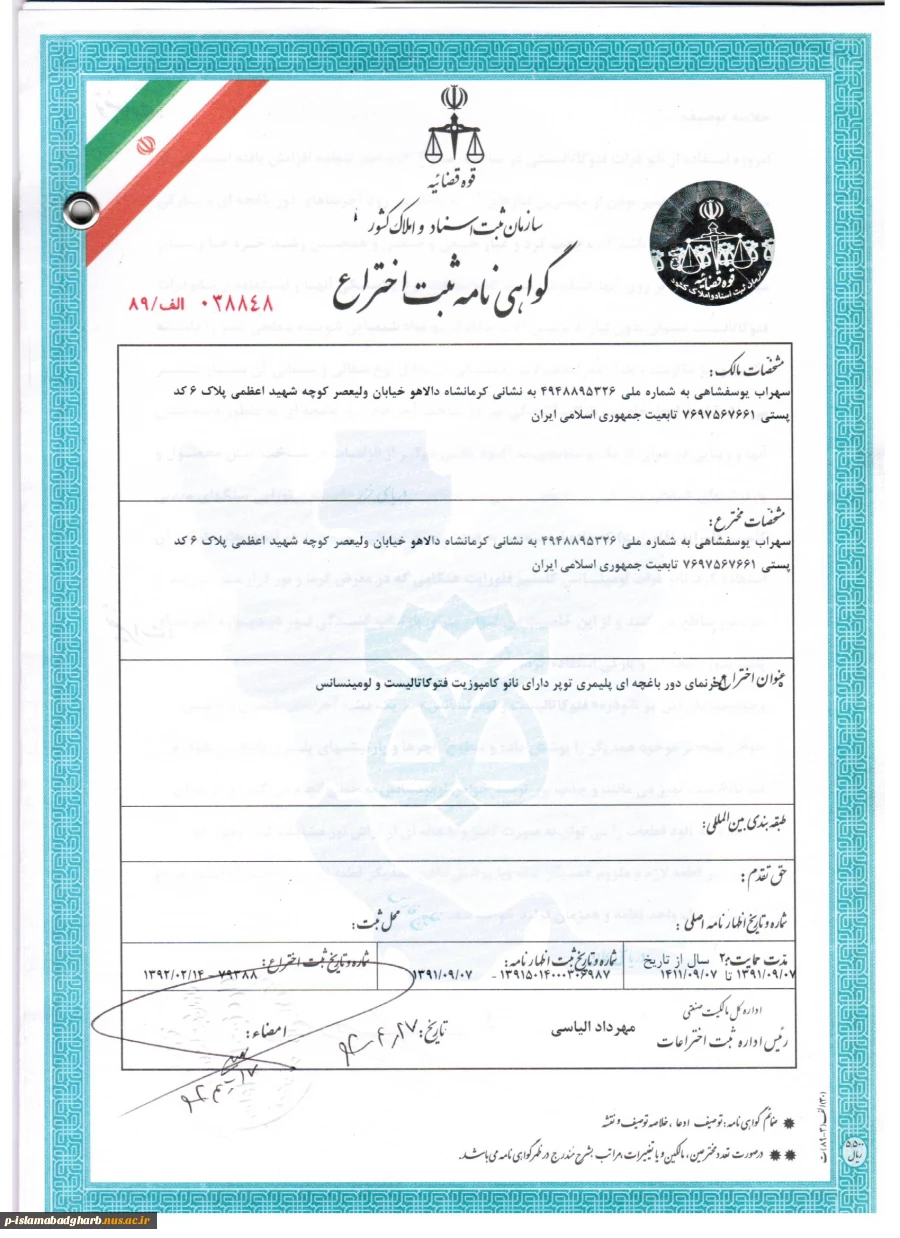 قوه قضائیه
سازمان ثبت اسناد و املاک کشور
گواهی نامه ثبت اختراع
۰۳۸۸۴۸ الف/۸۹
قوه قضائیه
سازمان ثبت اسناد و املاک کشور
مشخصات مالک:
سهراب یوسفشاهی به شماره ملی ۴۹۴۸۸۹۵۳۲۶ به نشانی کرمانشاه دالاهو خیابان ولیعصر کوچه شهید اعظمی پلاک ۶ کد
پستی ۷۶۹۷۵۶۷۶۶۱ تابعیت جمهوری اسلامی ایران
مشخصات مخترع:
سهراب یوسفشاهی به شماره ملی ۴۹۴۸۸۹۵۳۲۶ به نشانی کرمانشاه دالاهو خیابان ولیعصر کوچه شهید اعظمی پلاک ۶ کد
پستی ۷۶۹۷۵۶۷۶۶۱ تابعیت جمهوری اسلامی ایران
عنوان اختراع: آجرنمای دور باغچه ای پلیمری توپر دارای نانو کامپوزیت فتوکاتالیست و لومینسانس
طبقه بندی بین المللی:
حق تقدم:
شماره و تاریخ اظهارنامه اصلی: محل ثبت:
مدت حمایت: ۲۰ سال از تاریخ
۱۳۹۱/۰۹/۰۷ تا ۱۴۱۱/۰۹/۰۷
شماره و تاریخ ثبت اظهارنامه:
۱۳۹۱۵۰۱۴۰۰۰۳۰۶۹۸۷ - ۱۳۹۱/۰۹/۰۷
شماره و تاریخ ثبت اختراع:
۷۹۳۸۸ - ۱۳۹۲/۰۲/۱۴
اداره کل مالکیت صنعتی
رئیس اداره ثبت اختراعات
مهرداد الیاسی
تاریخ:
امضاء:
ضمائم گواهی نامه: توصیف ادعا، خلاصه توصیف و نقشه
درصورت تعدد مخترعین، مالکین و یا تغییرات، مراتب بشرح مندرج در ظهر گواهی نامه می باشد.
۵۵۰۰
ریال
p-islamabadgharb.nus.ac.ir